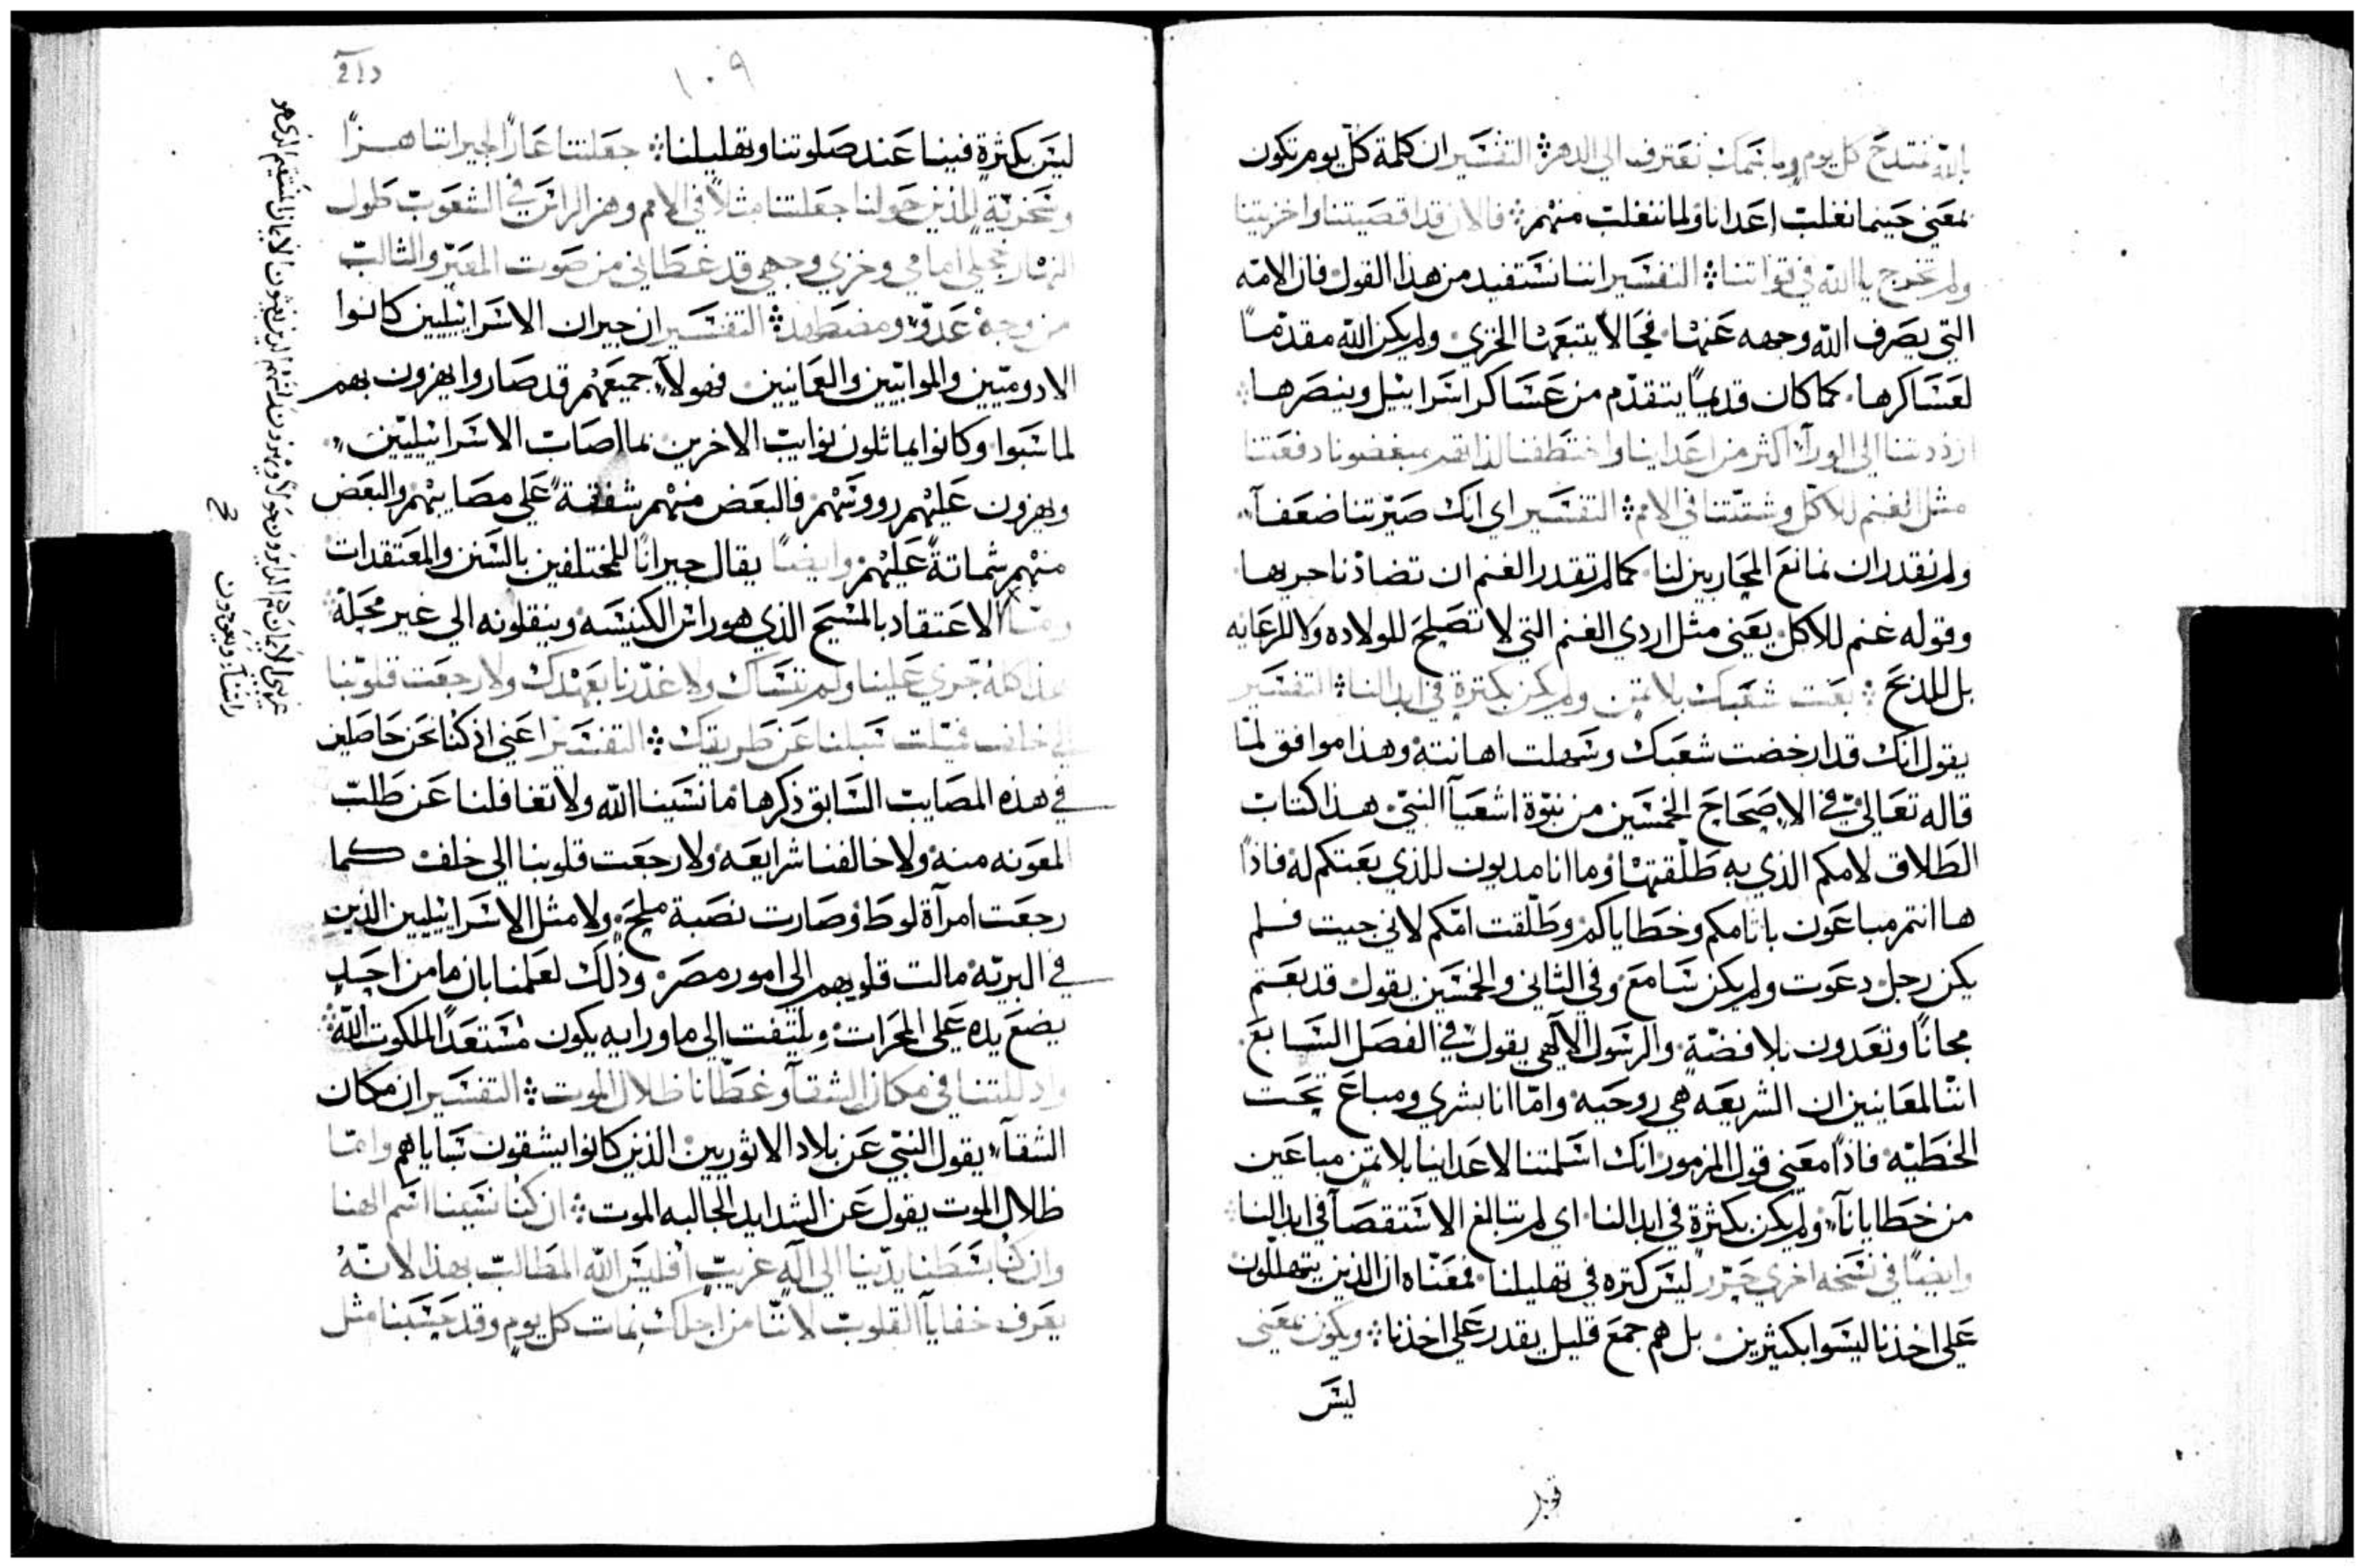 بالله نمتدح كل يوم وباسمك نعترف الي الدهر ۞ التفسير ان كلمة كل يوم تكون
بمعني حينما نغلب اعدانا ولما ننغلب منهم ۞ فالان قد اقصيتنا واخزيتنا
ولم تخرج يا الله في قواتنا ۞ التفسير اننا نستفيد من هذا القول فان الامّه
التي يصرف الله وجهه عنها، فحالاً يتبعها الخزي، ولم يكن الله مقدّمًا
لعساكرها. كما كان قديمًا يتقدّم من عساكر اسراييل وينصرها ۞
ارددتنا الي الورآء اكثر من اعداينا واختطفنا لذاتهم مبغضونا دفعتنا
مثل الغنم للاكل وشتّتنا في الامم ۞ التفسير اي انك صيّرتنا ضعفآء
ولم نقدر ان نمانع المحاربين لنا. كما لم تقدر الغنم ان تضادد ناحريها
وقوله غنم للاكل يعني مثل اردي الغنم التي لا تصلح للولاده ولا للرعايه
بل للذبح ۞ بعت شعبك بلا ثمن ولم يكن بكثرة في ابدالنا ۞ التفسير
يقول انك قد ارخصت شعبك وسهلت اهانته وهذا موافق لما
قاله تعالي في الاصحاح الخمسين من نبوّة اشعيآ النبي هذا كتاب
الطلاق لامكم الذي به طلّقتها وما انا مديون للذي بعتكم له فاذًا
ها انتم مباعون باثامكم وخطاياكم وطلّقت امّكم لاني جيت فلم
يكن رجل دعوت ولم يكن سامع وفي الثاني والخمسين يقول قد بعتم
مجانًا وتعدون بلا فضّة والرسول الالهي يقول في الفصل السابع
اننا لمعاينين ان الشريعه هي روحيه وامّا انا بشري ومباع تحت
الخطيّه فاذًا معني قول المزمور انك اسلمتنا لاعداينا بلا ثمن مباعين
من خطايانآ ولم يكن بكثرة في ابدالنا. اي لم تبالغ الاستقصآ في ابدالنا
وايضًا في نسخه اخري حرّر ليس كثره في تهليلنا. فمعناه ان الذين يتهللون
علي اخذنا ليسوا بكثيرين بل هم جمع قليل يقدر علي اخذنا ۞ ويكون بمعني
ليس
١٠٩
ليس بكثرة فينا عند صلوتنا وتهليلنا ۞ جعلتنا عارًا لجيراننا هزًا
وسخرية للذين حولنا جعلتنا مثلاً في الامم وهز الراس في الشعوب طول
النهار خجلي امامي وخزي وجهي قد غطاني من صوت المعيّر والثالب
من وجه عدوّ ومضطهد ۞ التفسير ان جيران الاسراييليين كانوا
الادوميّين والموابيين والعمانيين. فهولآء جميعهم قد صاروا يهزون بهم
لما سبوا وكانوا يماثلون نوايب الاخرين بما اصاب الاسراييليّين
ويهزون عليهم رووسهم فالبعض منهم شفقة علي مصايبهم والبعض
منهم شماتةً عليهم وايضًا يقال جيرانًا للمختلفين بالسنن والمعتقدات
الاعتقاد بالمسيح الذي هو راس الكنيسه وينقلونه الي غير محله ۞
هذا كله جري علينا ولم ننساك ولا غدّرنا بعهدك ولا رجعت قلوبنا
الي خلف فميّلت سبلنا عن طريقك ۞ التفسير اعني اذ كنا نحن حاصلين
في هذه المصايب السابق ذكرها ما نسينا الله ولا تغافلنا عن طلب
المعونه منه ولا خالفنا شرايعه ولا رجعت قلوبنا الي خلف كما
رجعت امرآة لوط وصارت نصبة ملح ولا مثل الاسراييليين الذين
في البريّه مالت قلوبهم الي امور مصر وذلك لعلمنا بان ما من احد
يضع يده علي المحراث ويلتفت الي ما ورايه يكون مستعدًا لملكوت الله ۞
واذللتنا في مكان الشقآ وغطّانا ظلال الموت ۞ التفسير ان مكان
الشقآء يقول النبي عن بلاد الاثوريين الذين كانوا يشقون سباياهم وامّا
ظلال الموت يقول عن الشدايد الجالبه الموت ۞ ان كنا نسينا اسم الهنا
وان كنا بسطنا يدّينا الي اله غريب افليس الله المطالب بهذا لانه
يعرف خفايا القلوب لانّنا من اجلك نمات كل يوم وقد حسبنا مثل